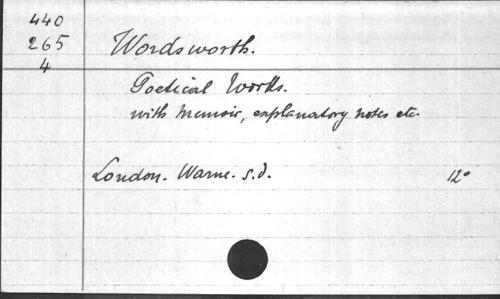 440
265
4
Wordsworth.
Poetical Works.
with Memoir, explanatory notes etc.
London. Warne. s.d. 12°